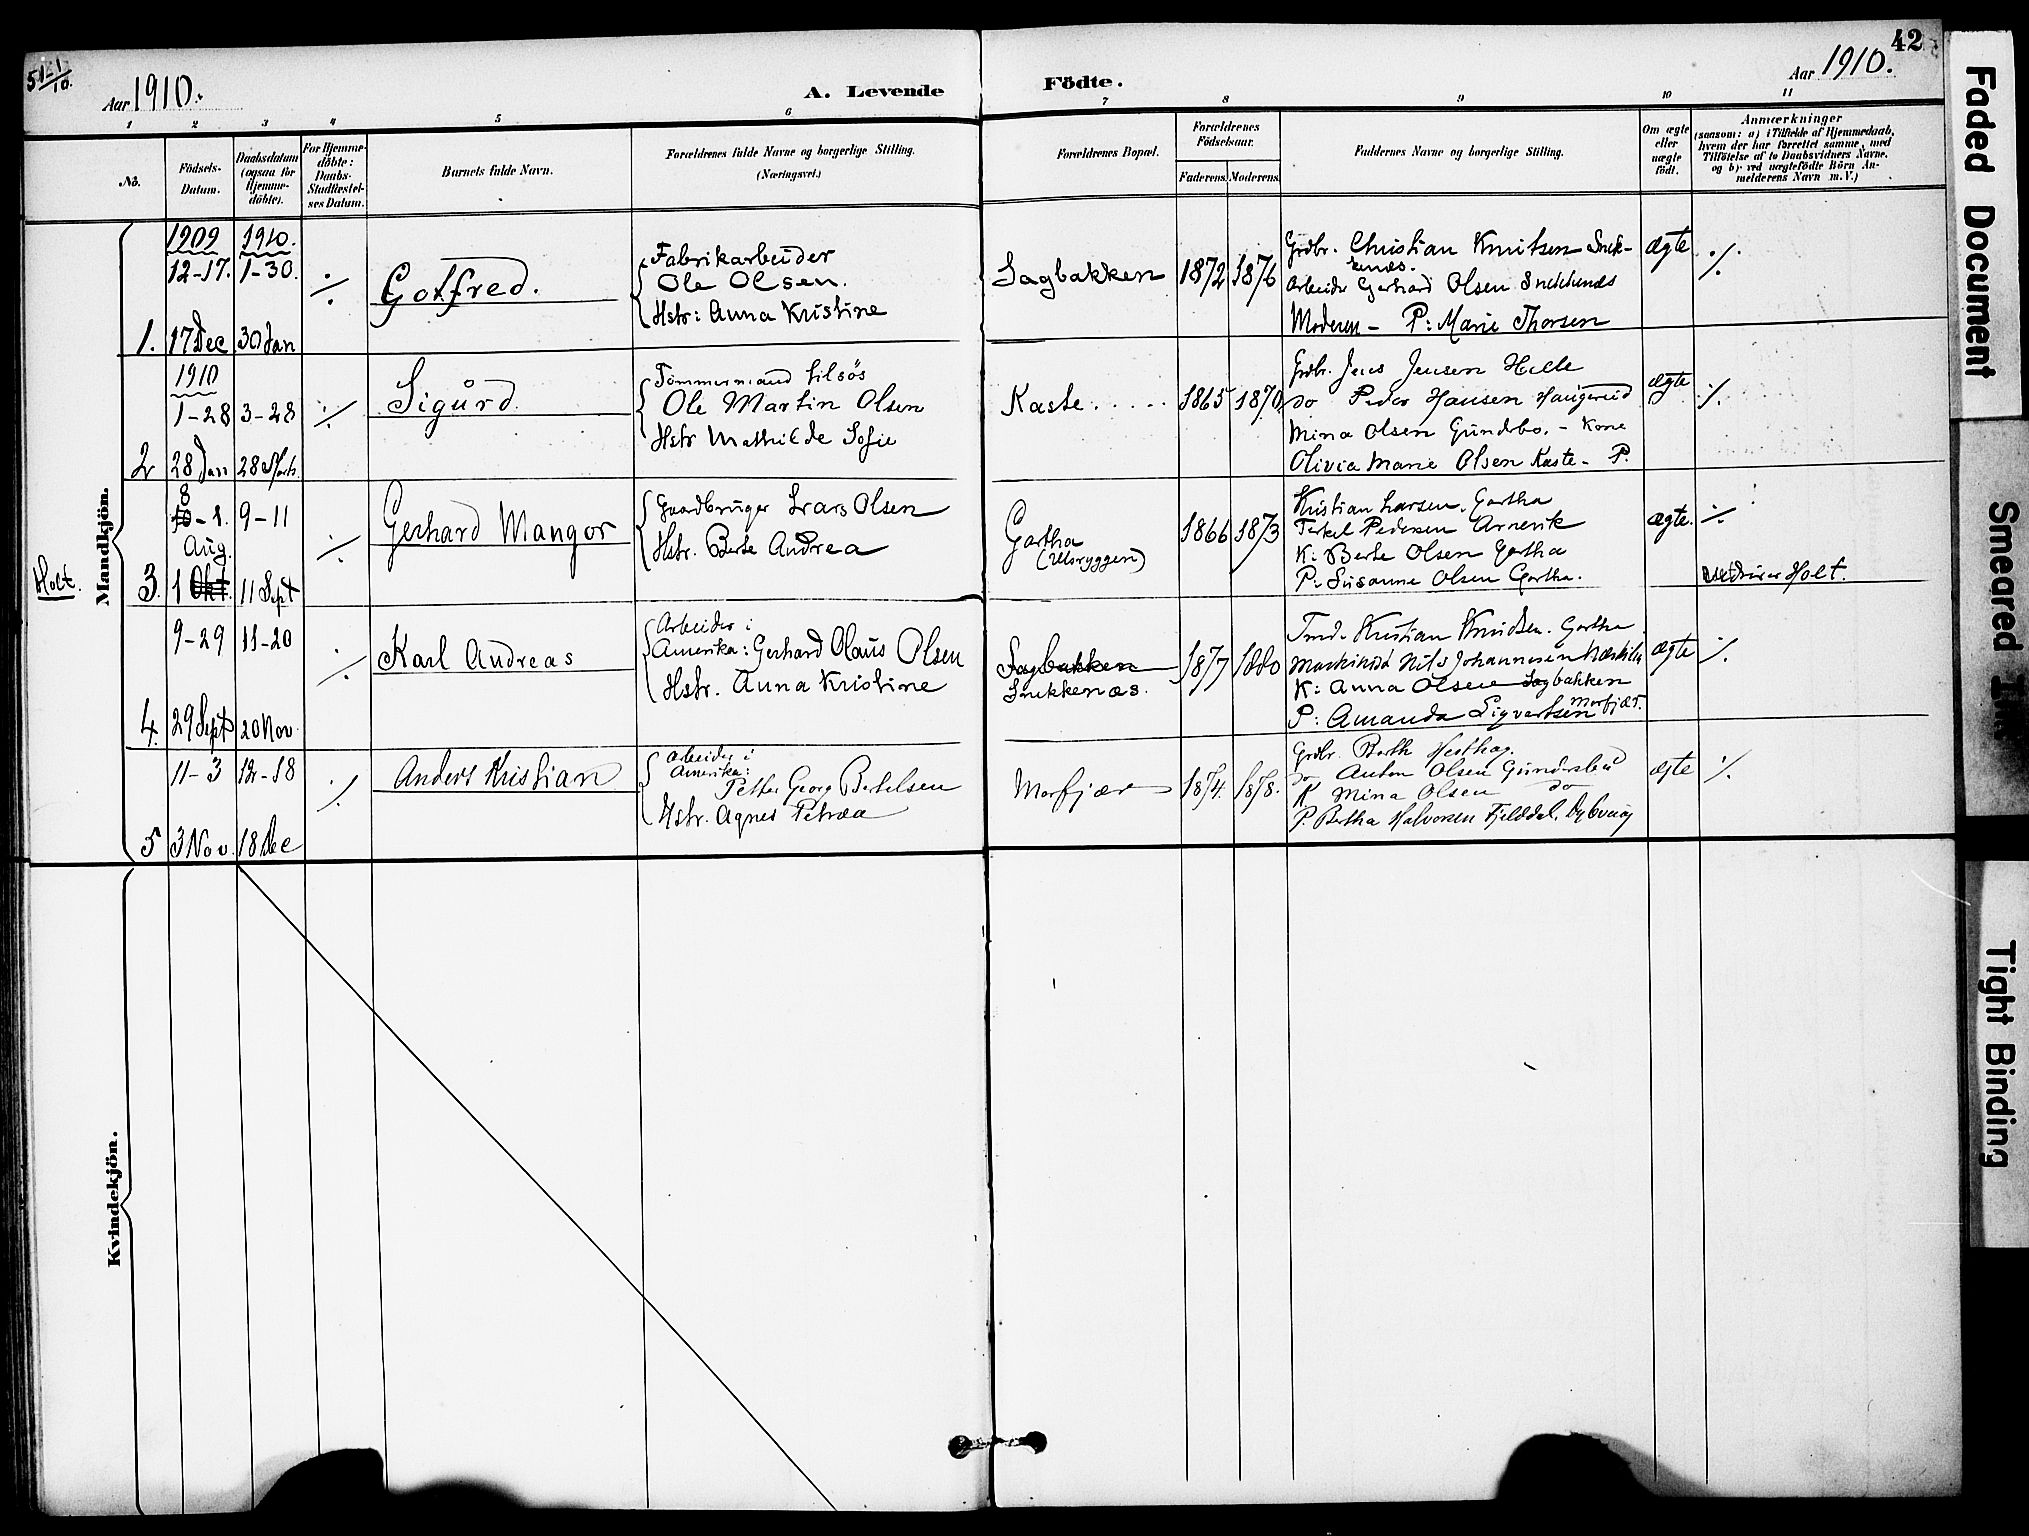 42
Aar 1910.
A. Levende Födte.
Aar 1910.
1 2 3 4 5 6 7 8 9 10 11
No.
Födsels-Datum.
Daabsdatum (ogsaa for Hjemme-döbte).
For Hjemme-döbte: Daabs-Stadfæstel-ses Datum.
Barnets fulde Navn.
Forældrenes fulde Navne og borgerlige Stilling.
(Næringsvei.)
Forældrenes Bopæl.
Forældrenes Födselsaar.
Faderens. Moderens.
Faddernes Navne og borgerlige Stilling.
Om ægte eller uægte födt.
Anmærkninger
(saasom: a) i Tilfælde af Hjemmedaab,
hvem der har forrettet samme, med
Tilföielse af to Daabsvidners Navne.
og b) ved uægtefödte Börn An-
melderens Navn m. V.)
Holt.
Mandkjön.
1909 1910.
12-17. 1-30.
1. 17 Dec 30 Jan
Gotfred.
Fabrikarbeider
Ole Olsen.
Hstr: Anna Kristine
Sagbakken 1872 1876
Grdbr. Christian Knutsen
Arbeider Gerhard Olsen
Moderen - P: Marie Thorsen
ægte ./.
1910
1-28 3-28
2 28 Jan 28 Marts.
Sigurd
Tømmermand tilsös
Ole Martin Olsen
Hstr Mathilde Sofie
Kaste 1865 1870
Grdbr. Jens Jensen Helle
do Peder Hansen Haugerud
Mina Olsen Gundersbo. - Kone
Olivia Marie Olsen Kaste - P.
ægte ./.
8
10 - 1. 9-11
Aug.
3. 1 Okt. 11 Sept
Gerhard Mangor
Gaardbruger Lars Olsen
Hstr. Berte Andrea
Gartha
(Ulsryggen)
1866 1873
Kristian Larsen. Gartha
Terkel Pedersen Arnevik
K: Berte Olsen Gartha
P: Susanne Olsen Gartha.
ægte. ./.
Holt.
9-29 11-20
4. 29 Sept 20 Nov.
Karl Andreas
Arbeider i
Amerika: Gerhard Olaus Olsen
Hstr. Anna Kristine
Sagbakken
Snekkenæs.
1877 1880
Kristian Knudsen. Gartha
Nils Johannesen
K: Anna Olsen Sagbakken
P: Amanda Sigvartsen Morfjær.
ægte ./.
11-3 12-18
5 3 Nov. 18 Dec
Anders Kristian
Arbeider i
Amerika:
Petter Georg Bertelsen
Hstr. Agnes Petrea
Morfjær 1874. 1878.
Grdbr. Berth Hesthag.
do Anton Olsen Gundersbu
K Mina Olsen do
P. Bertha Halvorsen Fjelddal, Dybvaag
ægte ./.
Kvindekjön.
Faded Document
Smeared Ink
Tight Binding